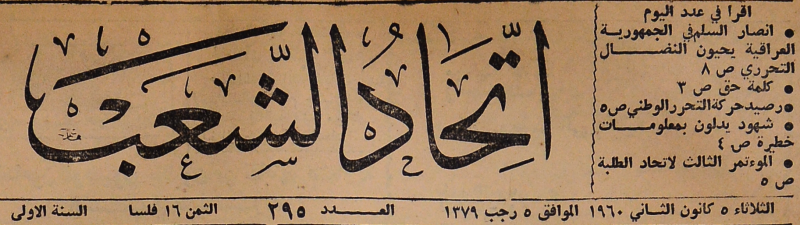 اقرأ في عدد اليوم
● انصار السلم في الجمهورية
العراقية يحيون النضـــال
التحرري ص ٨
● كلمة حق ص ٣
● رصيد حركة التحرر الوطني ص ٥
● شهود يدلون بمعلومـــات
خطيرة ص ٤
● الموءتمر الثالث لاتحاد الطلبة
ص ٥
اتّحَادُ الشّعَب
الثلاثاء ٥ كانون الثاني ١٩٦٠ الموافق ٥ رجب ١٣٧٩ العـــدد ٢٩٥ الثمن ١٦ فلسا السنة الاولى